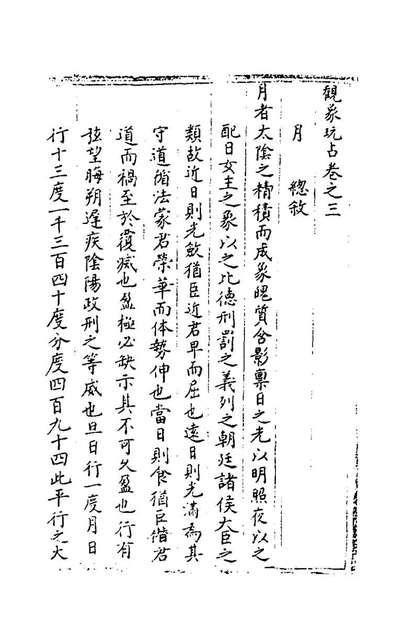 觀象玩占卷之三
月　總敘
月者太陰之精積而成象魄質含影稟日之光以明照夜以之
配日女主之象以之比德刑罰之義列之朝廷諸侯大臣之
類故近日則光斂猶臣近君卑而屈也遠日則光滿為其
守道循法蒙君榮華而体勢伸也當日則食猶臣僭君
道而禍至於覆滅也盈極必缺示其不可久盈也行有
弦望晦朔遲疾陰陽政刑之等威也旦日行一度月日
行十三度一千三百四十度分度四百九十四此平行之大